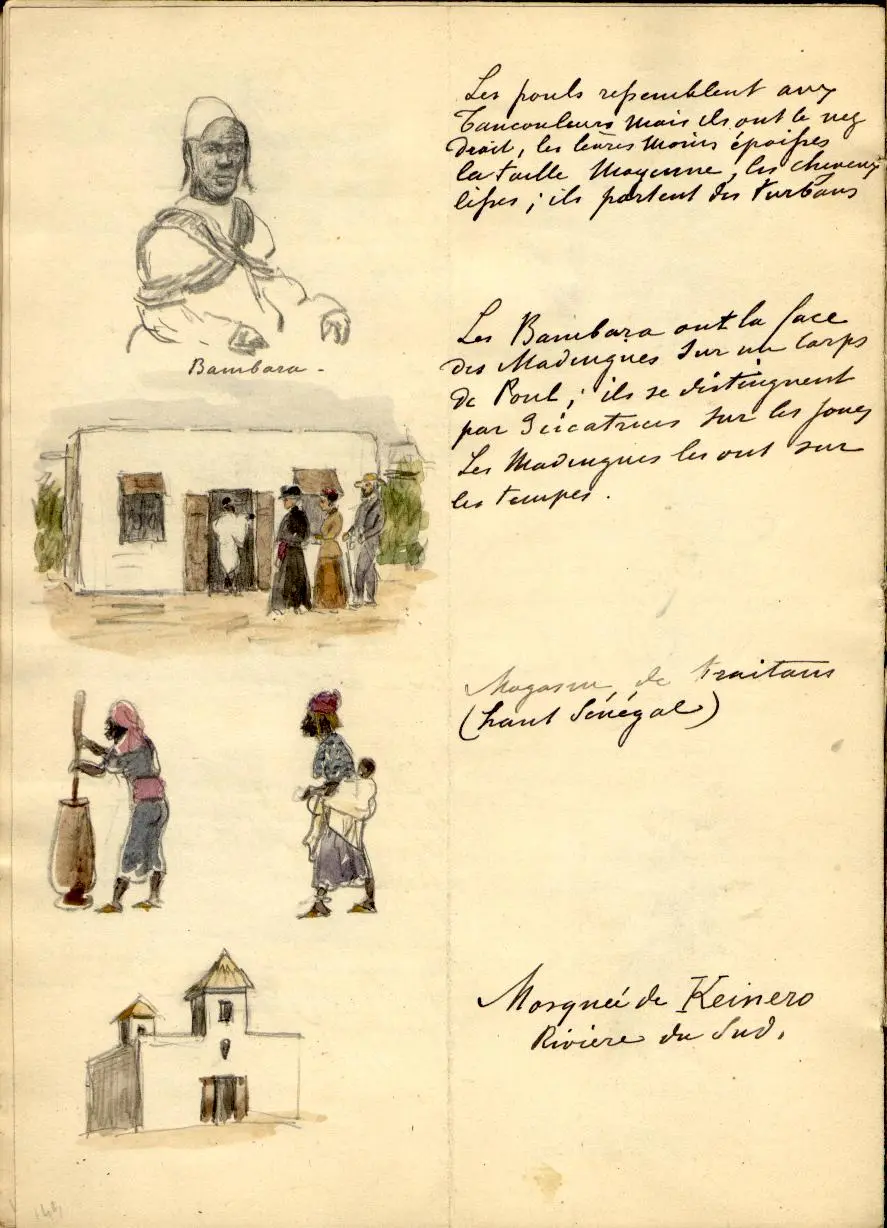 Les pouls ressemblent aux
Toucouleurs mais ils ont le nez
droit, les lèvres moins épaisses
la taille moyenne, les cheveux
lisses ; ils portent des turbans
Les Bambara ont la face
des Madingues sur un corps
de Poul ; ils se distinguent
par 3 cicatrices sur les joues
Les Madingues les ont sur
les tempes.
Bambara -
Magasin de traitans
(haut Sénégal)
Mosquée de Keinero
Rivière du Sud.